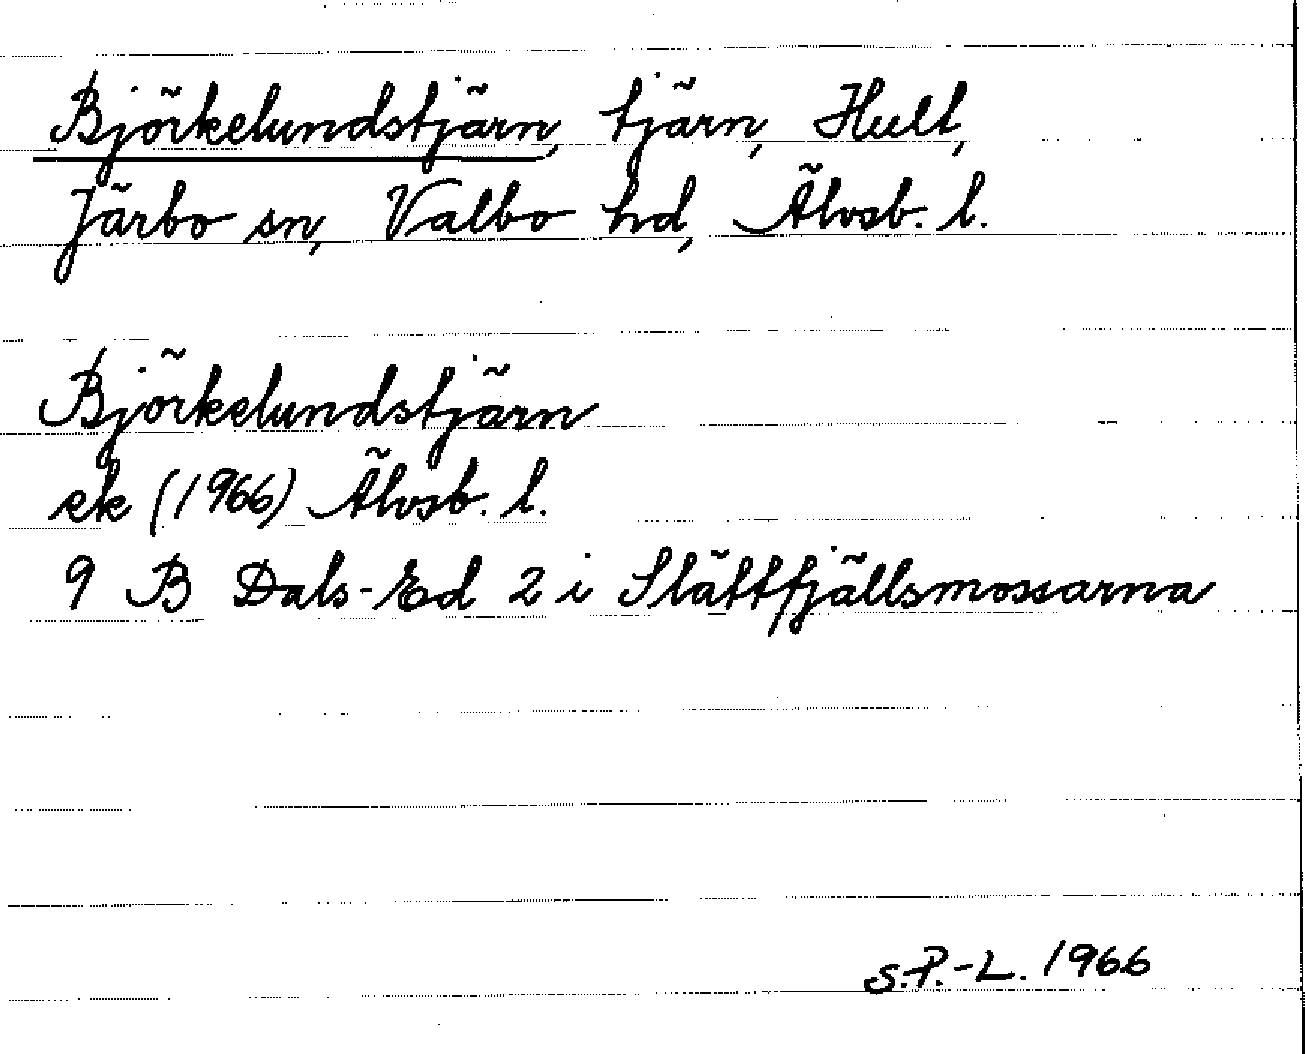 Björkelundstjärn, tjärn, Hult,
Järbo sn, Valbo hd, Älvsb. l.
Björkelundstjärn
ek (1966) Älvsb. l.
9 B Dals-Ed 2 i Slättfjällsmossarna
S.P.-L. 1966